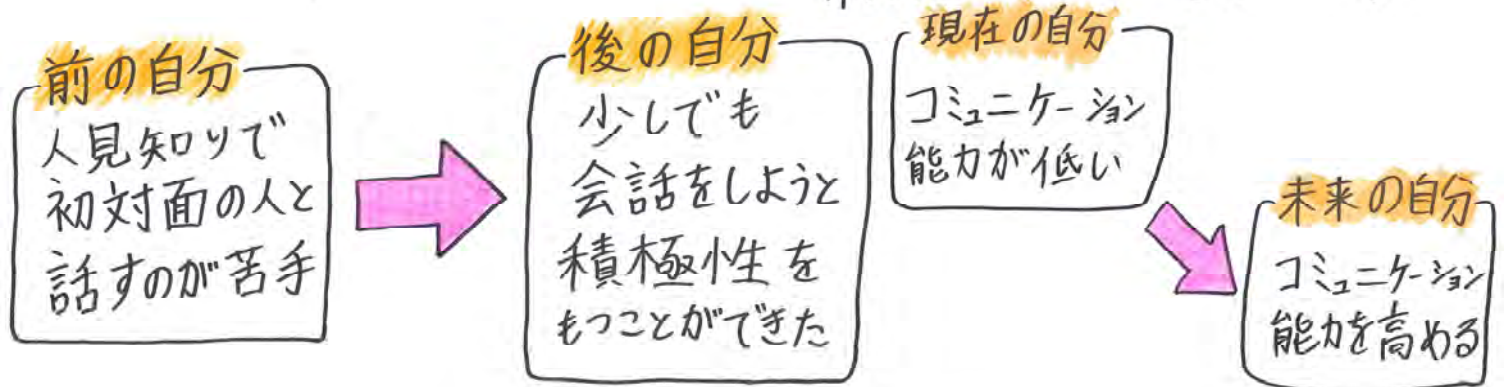 前の自分
人見知りで
初対面の人と
話すのが苦手
後の自分
少しでも
会話をしようと
積極性を
もつことができた
現在の自分
コミュニケーション
能力が低い
未来の自分
コミュニケーション
能力を高める